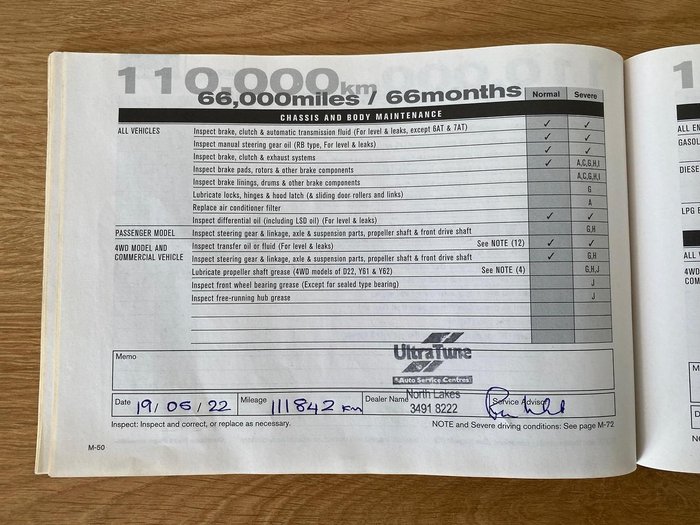 110,000km
66,000miles / 66months
Normal Severe
CHASSIS AND BODY MAINTENANCE
ALL VEHICLES Inspect brake, clutch & automatic transmission fluid (For level & leaks, except 6AT & 7AT) ✓ ✓
Inspect manual steering gear oil (RB type, For level & leaks) ✓ ✓
Inspect brake, clutch & exhaust systems ✓ ✓
Inspect brake pads, rotors & other brake components ✓ A,C,G,H,I
Inspect brake linings, drums & other brake components A,C,G,H,I
Lubricate locks, hinges & hood latch (& sliding door rollers and links) G
Replace air conditioner filter A
Inspect differential oil (including LSD oil) (For level & leaks) ✓ ✓
PASSENGER MODEL Inspect steering gear & linkage, axle & suspension parts, propeller shaft & front drive shaft G,H
4WD MODEL AND COMMERCIAL VEHICLE Inspect transfer oil or fluid (For level & leaks) See NOTE (12) ✓ ✓
Inspect steering gear & linkage, axle & suspension parts, propeller shaft & front drive shaft ✓ G,H
Lubricate propeller shaft grease (4WD models of D22, Y61 & Y62) See NOTE (4) G,H,J
Inspect front wheel bearing grease (Except for sealed type bearing) J
Inspect free-running hub grease J
Memo
UltraTune
Auto Service Centres
Date 19/05/22 Mileage 111842 km Dealer Name North Lakes Service Advisor
3491 8222
Inspect: Inspect and correct, or replace as necessary. NOTE and Severe driving conditions: See page M-72
M-50
1
ALL EN
GASOL
DIESE
LPG E
ALL V
4WD
COM
M
Da
Ins